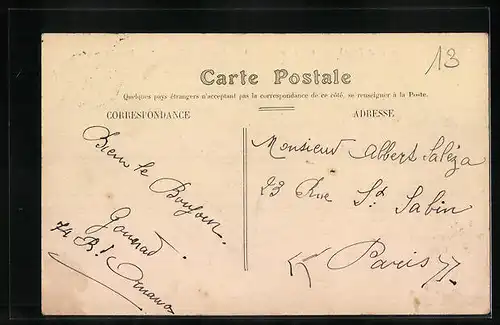 13
Carte Postale
Quelques pays étrangers n'acceptant pas la correspondance de ce côté, se renseigner à la Poste.
CORRESPONDANCE
ADRESSE
Bien le Bonjour
74 Bd Ornano
Monsieur Albert Saléza
23 Rue St Sabin
Paris